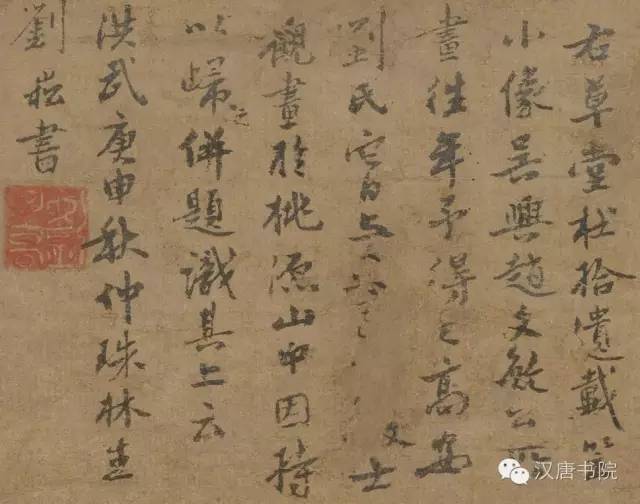 右草堂杜拾遗戴笠
小像吴興趙文敏公所
畫往年予得之高安
劉氏
文士
觀畫於桃源山中因持
以歸之併題識其上云
洪武庚申秋仲珠林生
劉崧書
汉唐书院